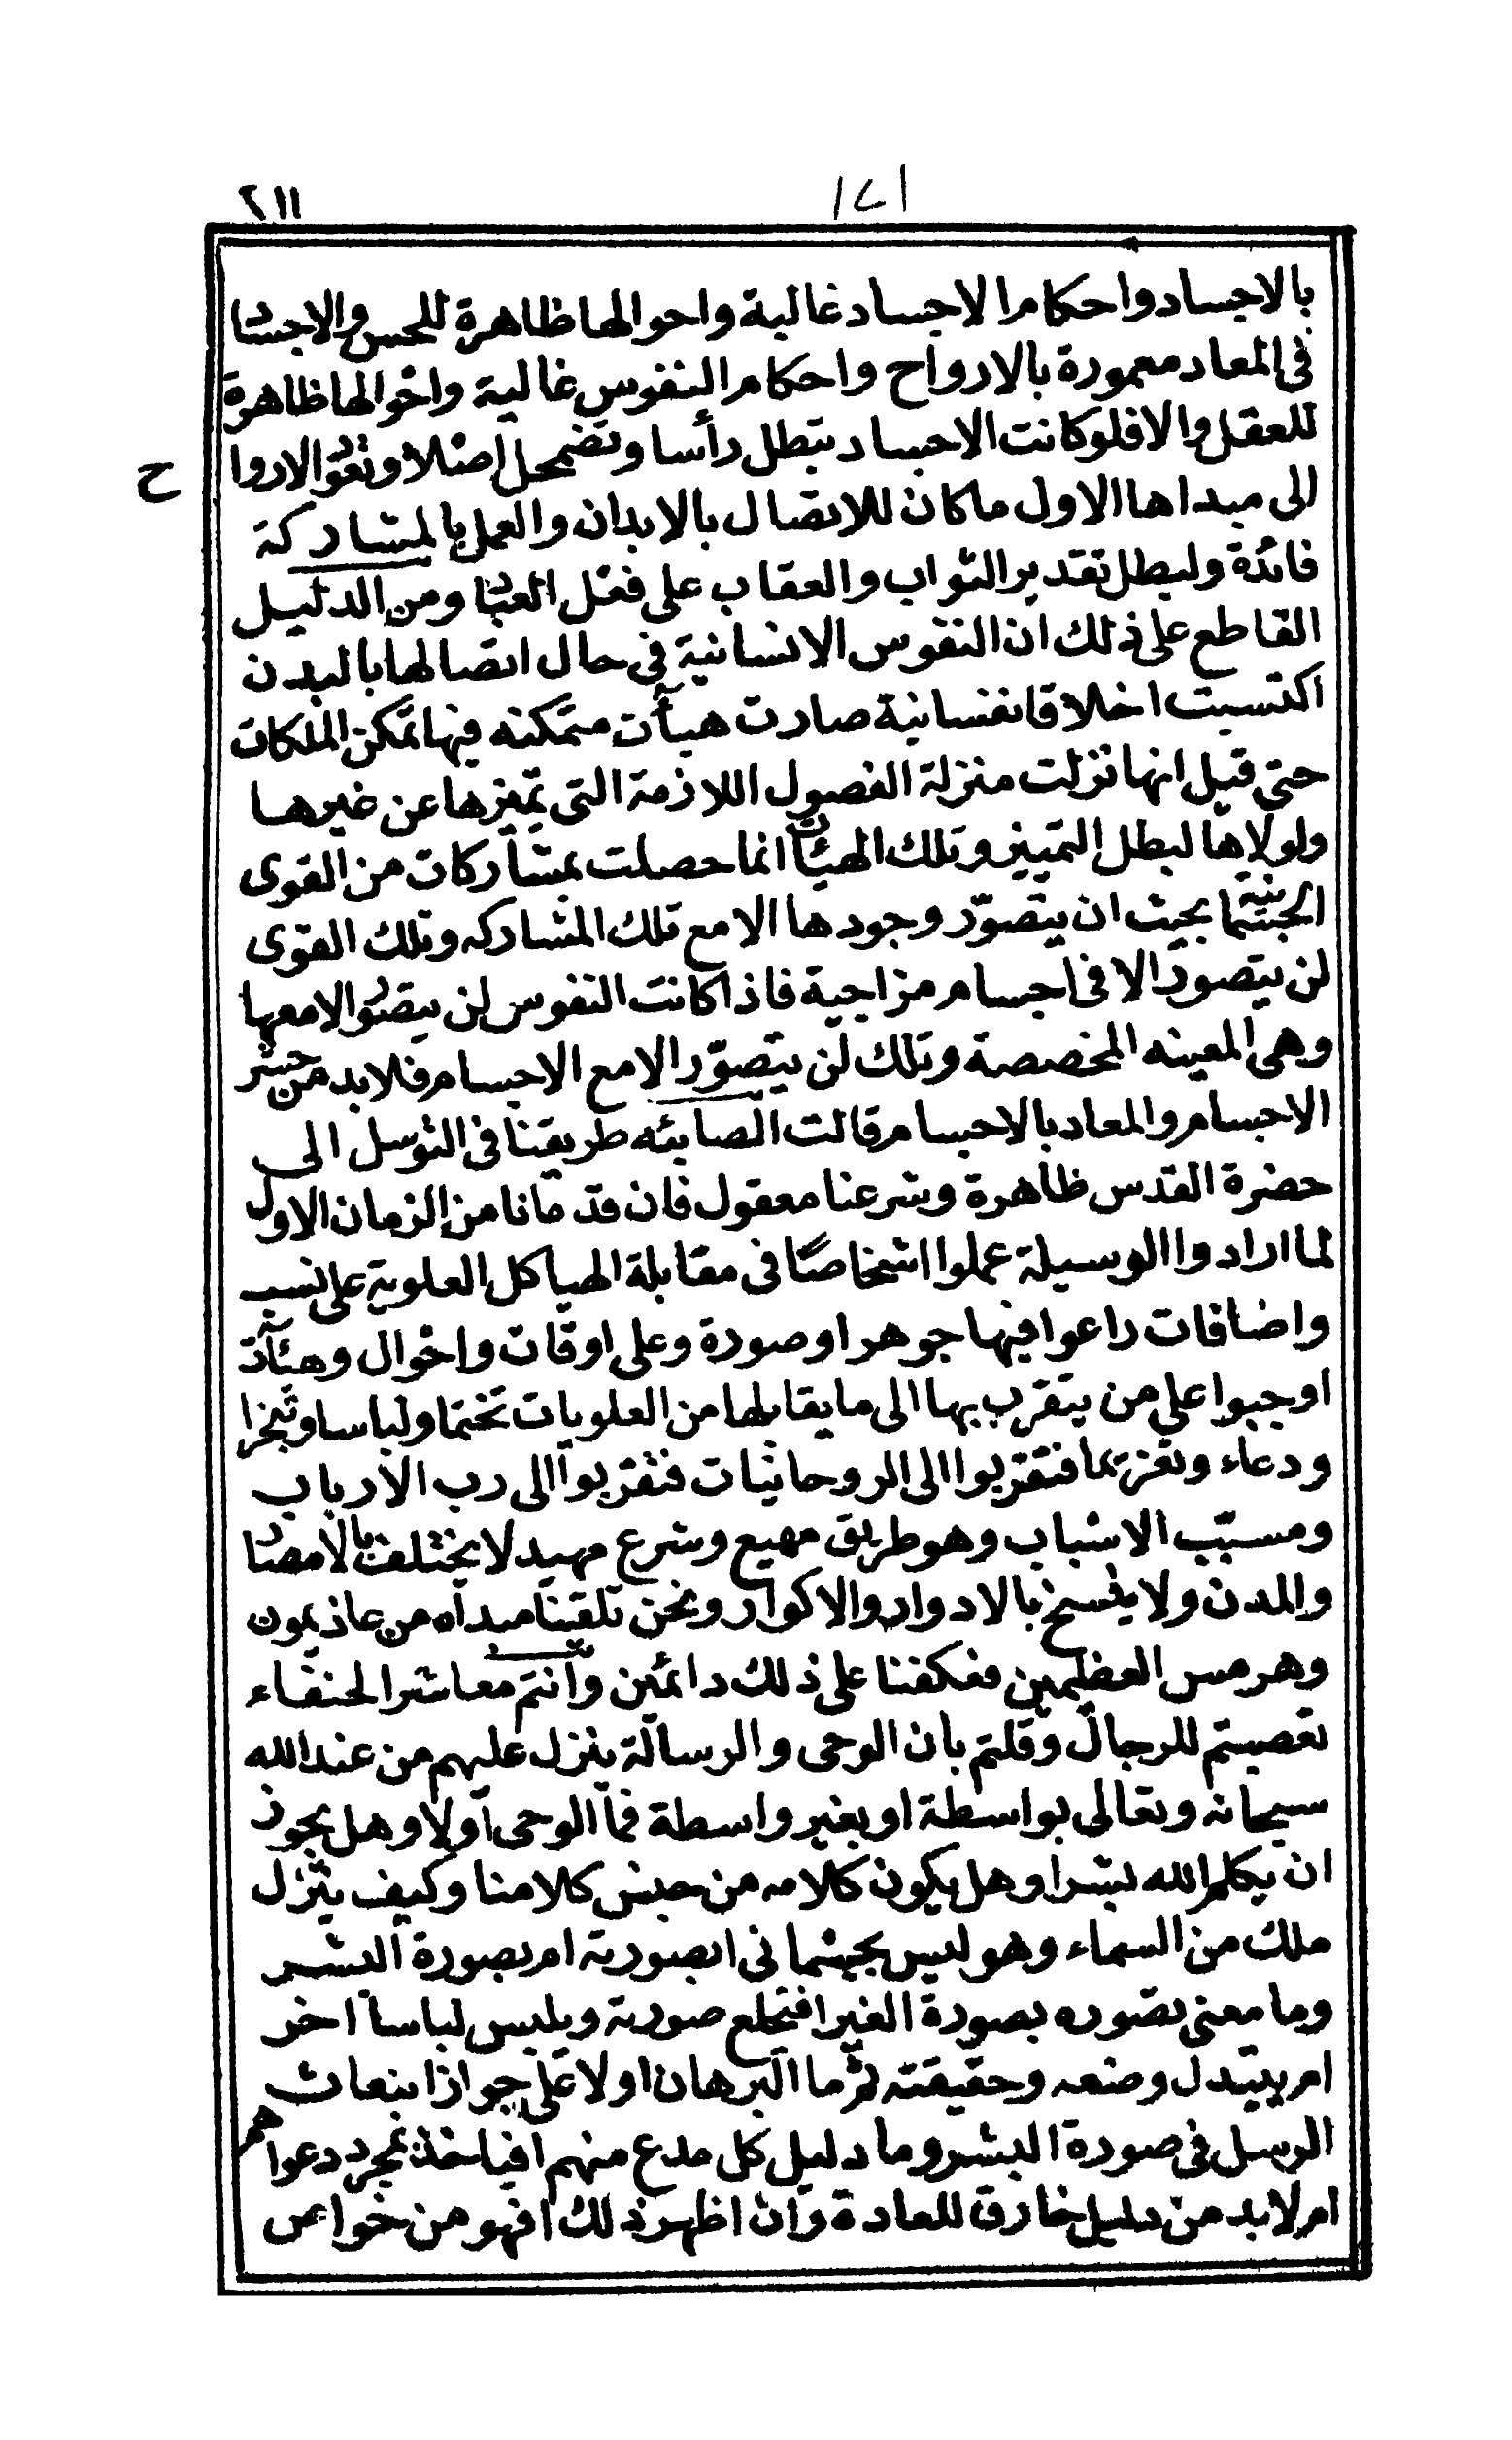 ١٧١
٢١١
بالاجساد واحكام الاجساد غالبة واحوالها ظاهرة للحس والاجساد
فى المعاد معمورة بالارواح واحكام النفوس غالبة واحوالها ظاهرة
للعقل والا فلو كانت الاجساد تبطل رأسا وتضمحل اصلا وتعود الاروا
ح
الى مبداها الاول ماكان للاتصال بالابدان والعمل بالمشاركة
فائدة ولبطل تقدير الثواب والعقاب على فعل العباد ومن الدليل
القاطع على ذلك ان النفوس الانسانية فى حال اتصالها بالبدن
اكتسبت اخلاقا نفسانية صارت هيأت متمكنه فيها تمكن الملكات
حتى قيل انها نزلت منزلة الفصول اللازمة التى تميزها عن غيرها
ولولاها لبطل التمييز وتلك الهيئات انما حصلت بمشاركات من القوى
الجسمانية بحيث ان يتصور وجودها الا مع تلك المشاركه وتلك القوى
لن يتصور الا فى اجسام مزاجية فاذا كانت النفوس لن يتصور الا معها
وهى المعينه المخصصة وتلك لن يتصور الا مع الاجسام فلابد من حشر
الاجسام والمعاد بالاجسام قالت الصابئه طريقنا فى التوسل الى
حضرة القدس ظاهرة وشرعنا معقول فان قدمانا من الزمان الاول
لما ارادوا الوسيلة عملوا اشخاصا فى مقابلة الهياكل العلوية على نسب
واضافات راعوا فيها جوهرا وصورة وعلى اوقات واحوال وهيئات
اوجبوا على من يتقرب بها الى ما يقابلها من العلويات تختما ولباسا وتبخرا
ودعاء وتعزيما فتقربوا الى الروحانيات فتقربوا الى رب الارباب
ومسبب الاسباب وهو طريق مهيع وشرع مهيد لا يختلف بالامصار
والمدن ولا ينسخ بالادوار والاكوار ونحن تلقينا مبداه من عاذيمون
وهرمس العظيمين فعكفنا على ذلك دائمين وانتم معاشر الحنفاء
تعصبتم للرجال وقلتم بان الوحى والرسالة ينزل عليهم من عند الله
سبحانه وتعالى بواسطة او بغير واسطة فما الوحى اولا وهل يجوز
ان يكلم الله بشرا وهل يكون كلامه من جنس كلامنا وكيف ينزل
ملك من السماء وهو ليس بجسمانى ابصورته ام بصورة البشر
وما معنى تصوره بصورة الغير افيخلع صورته ويلبس لباسا اخر
ام يتبدل وضعه وحقيقته ثم ما البرهان اولا على جواز انبعاث
الرسل فى صورة البشر وما دليل كل مدع منهم افياخذ بمجرد دعواهم
ام لابد من دليل خارق للعادة وان اظهر ذلك افهو من خواص